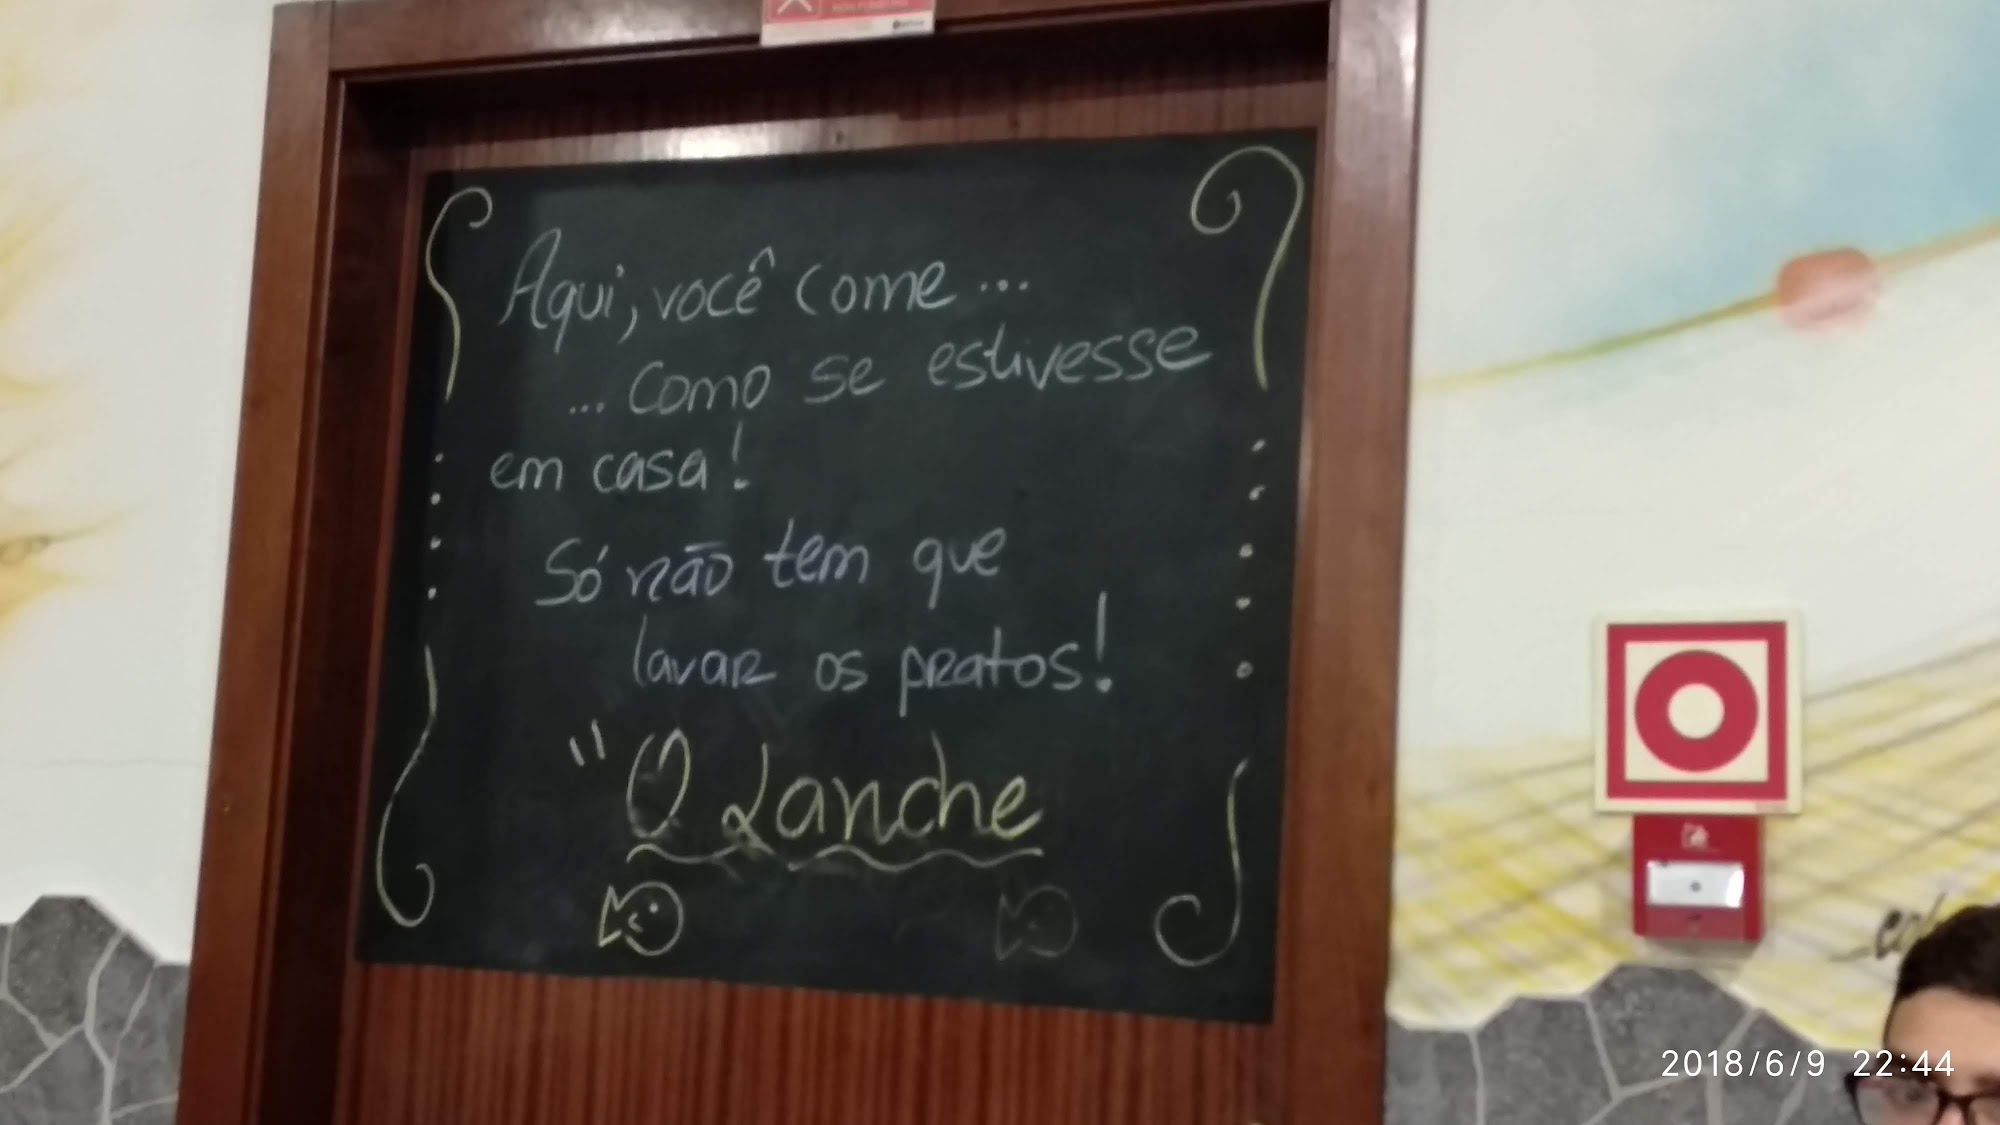 Aqui, você come...
... como se estivesse
em casa!
Só não tem que
lavar os pratos!
"O Lanche
2018/6/9 22:44